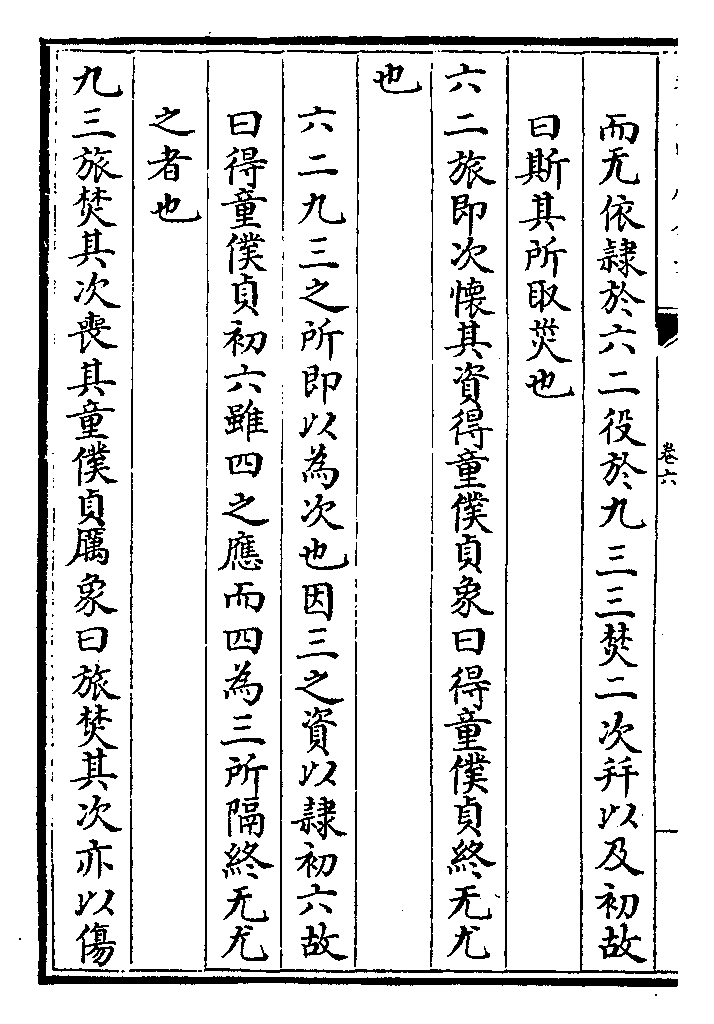 而无依隷於六二役於九三三焚二次幷以及初故
曰斯其所取災也
六二旅即次懷其資得童僕貞象曰得童僕貞終无尤
也
六二九三之所即以為次也因三之資以隷初六故
曰得童僕貞初六雖四之應而四為三所隔終无尤
之者也
九三旅焚其次喪其童僕貞厲象曰旅焚其次亦以傷
卷六